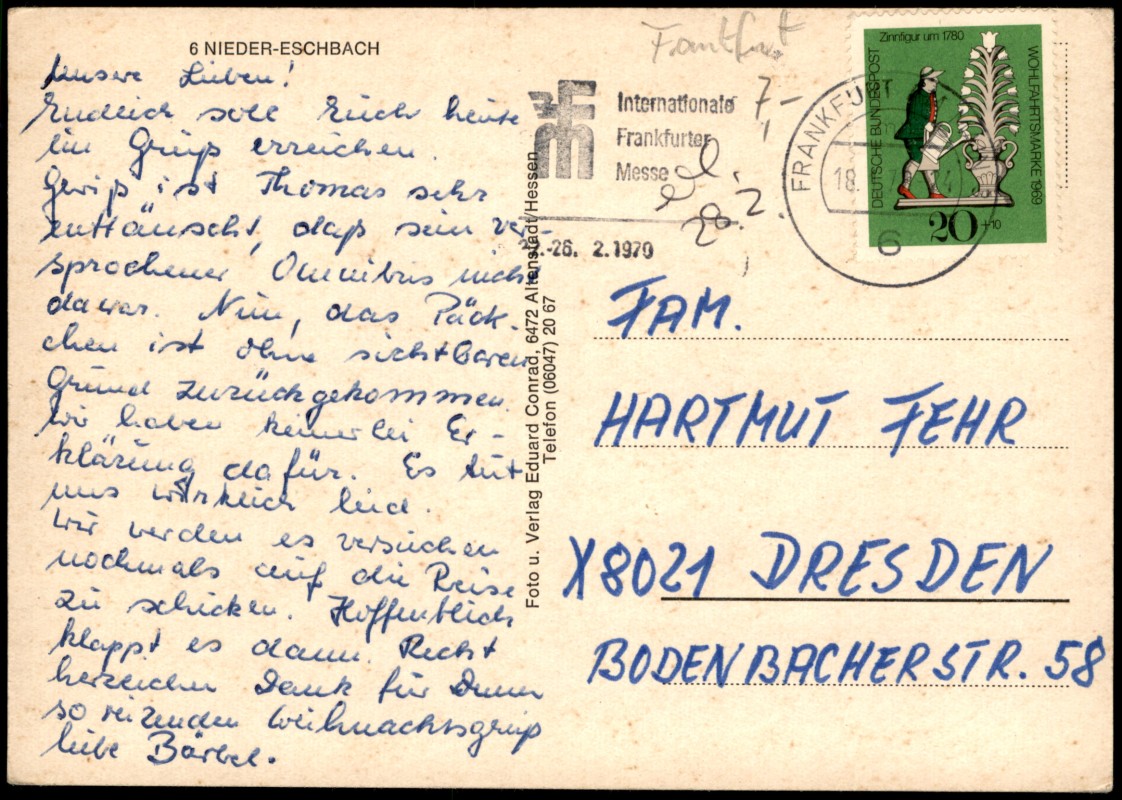 6 NIEDER-ESCHBACH
Unsere Lieben!
Endlich soll Euch heute
ein Gruß erreichen.
Gewiß ist Thomas sehr
enttäuscht, daß sein ver-
sprochener Omnibus nicht
da war. Nun, das Päck-
chen ist ohne sichtbaren
Grund zurückgekommen.
Wir haben keinerlei Er-
klärung dafür. Es tut
uns wirklich leid.
Wir werden es versuchen
nochmals auf die Reise
zu schicken. Hoffentlich
klappt es dann. Recht
herzlichen Dank für Deinen
so reizenden Weihnachtsgruß
liebe Bärbel.
Foto u. Verlag Eduard Conrad, 6472 Altenstadt/Hessen
Telefon (06047) 20 67
Frankfurt
7,-
Internationale
Frankfurter
Messe
-26. 2.1970
28.2.
FRANKFURT
18.
6
Zinnfigur um 1780
DEUTSCHE BUNDESPOST
WOHLFAHRTSMARKE 1969
20+10
FAM.
HARTMUT FEHR
X8021 DRESDEN
BODENBACHERSTR. 58